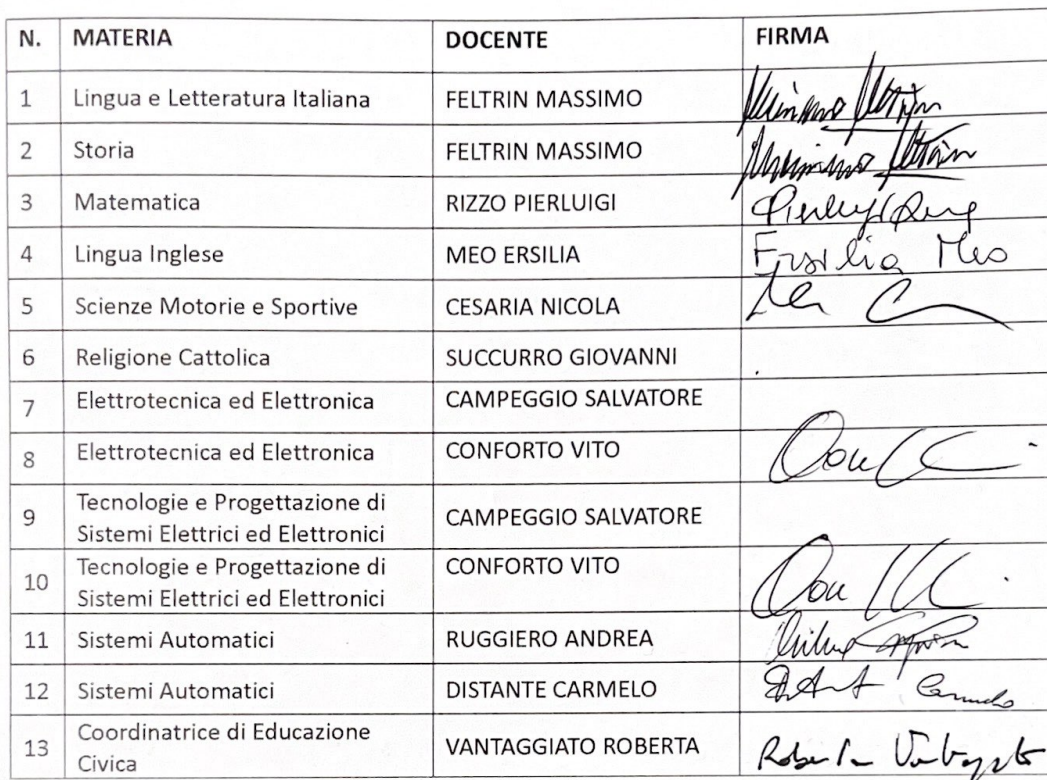 N. MATERIA DOCENTE FIRMA
1 Lingua e Letteratura Italiana FELTRIN MASSIMO Massimo Feltrin
2 Storia FELTRIN MASSIMO Massimo Feltrin
3 Matematica RIZZO PIERLUIGI
4 Lingua Inglese MEO ERSILIA Ersilia Meo
5 Scienze Motorie e Sportive CESARIA NICOLA
6 Religione Cattolica SUCCURRO GIOVANNI
7 Elettrotecnica ed Elettronica CAMPEGGIO SALVATORE
8 Elettrotecnica ed Elettronica CONFORTO VITO
9 Tecnologie e Progettazione di
Sistemi Elettrici ed Elettronici CAMPEGGIO SALVATORE
10 Tecnologie e Progettazione di CONFORTO VITO
Sistemi Elettrici ed Elettronici
11 Sistemi Automatici RUGGIERO ANDREA
12 Sistemi Automatici DISTANTE CARMELO
13 Coordinatrice di Educazione
Civica VANTAGGIATO ROBERTA Roberta